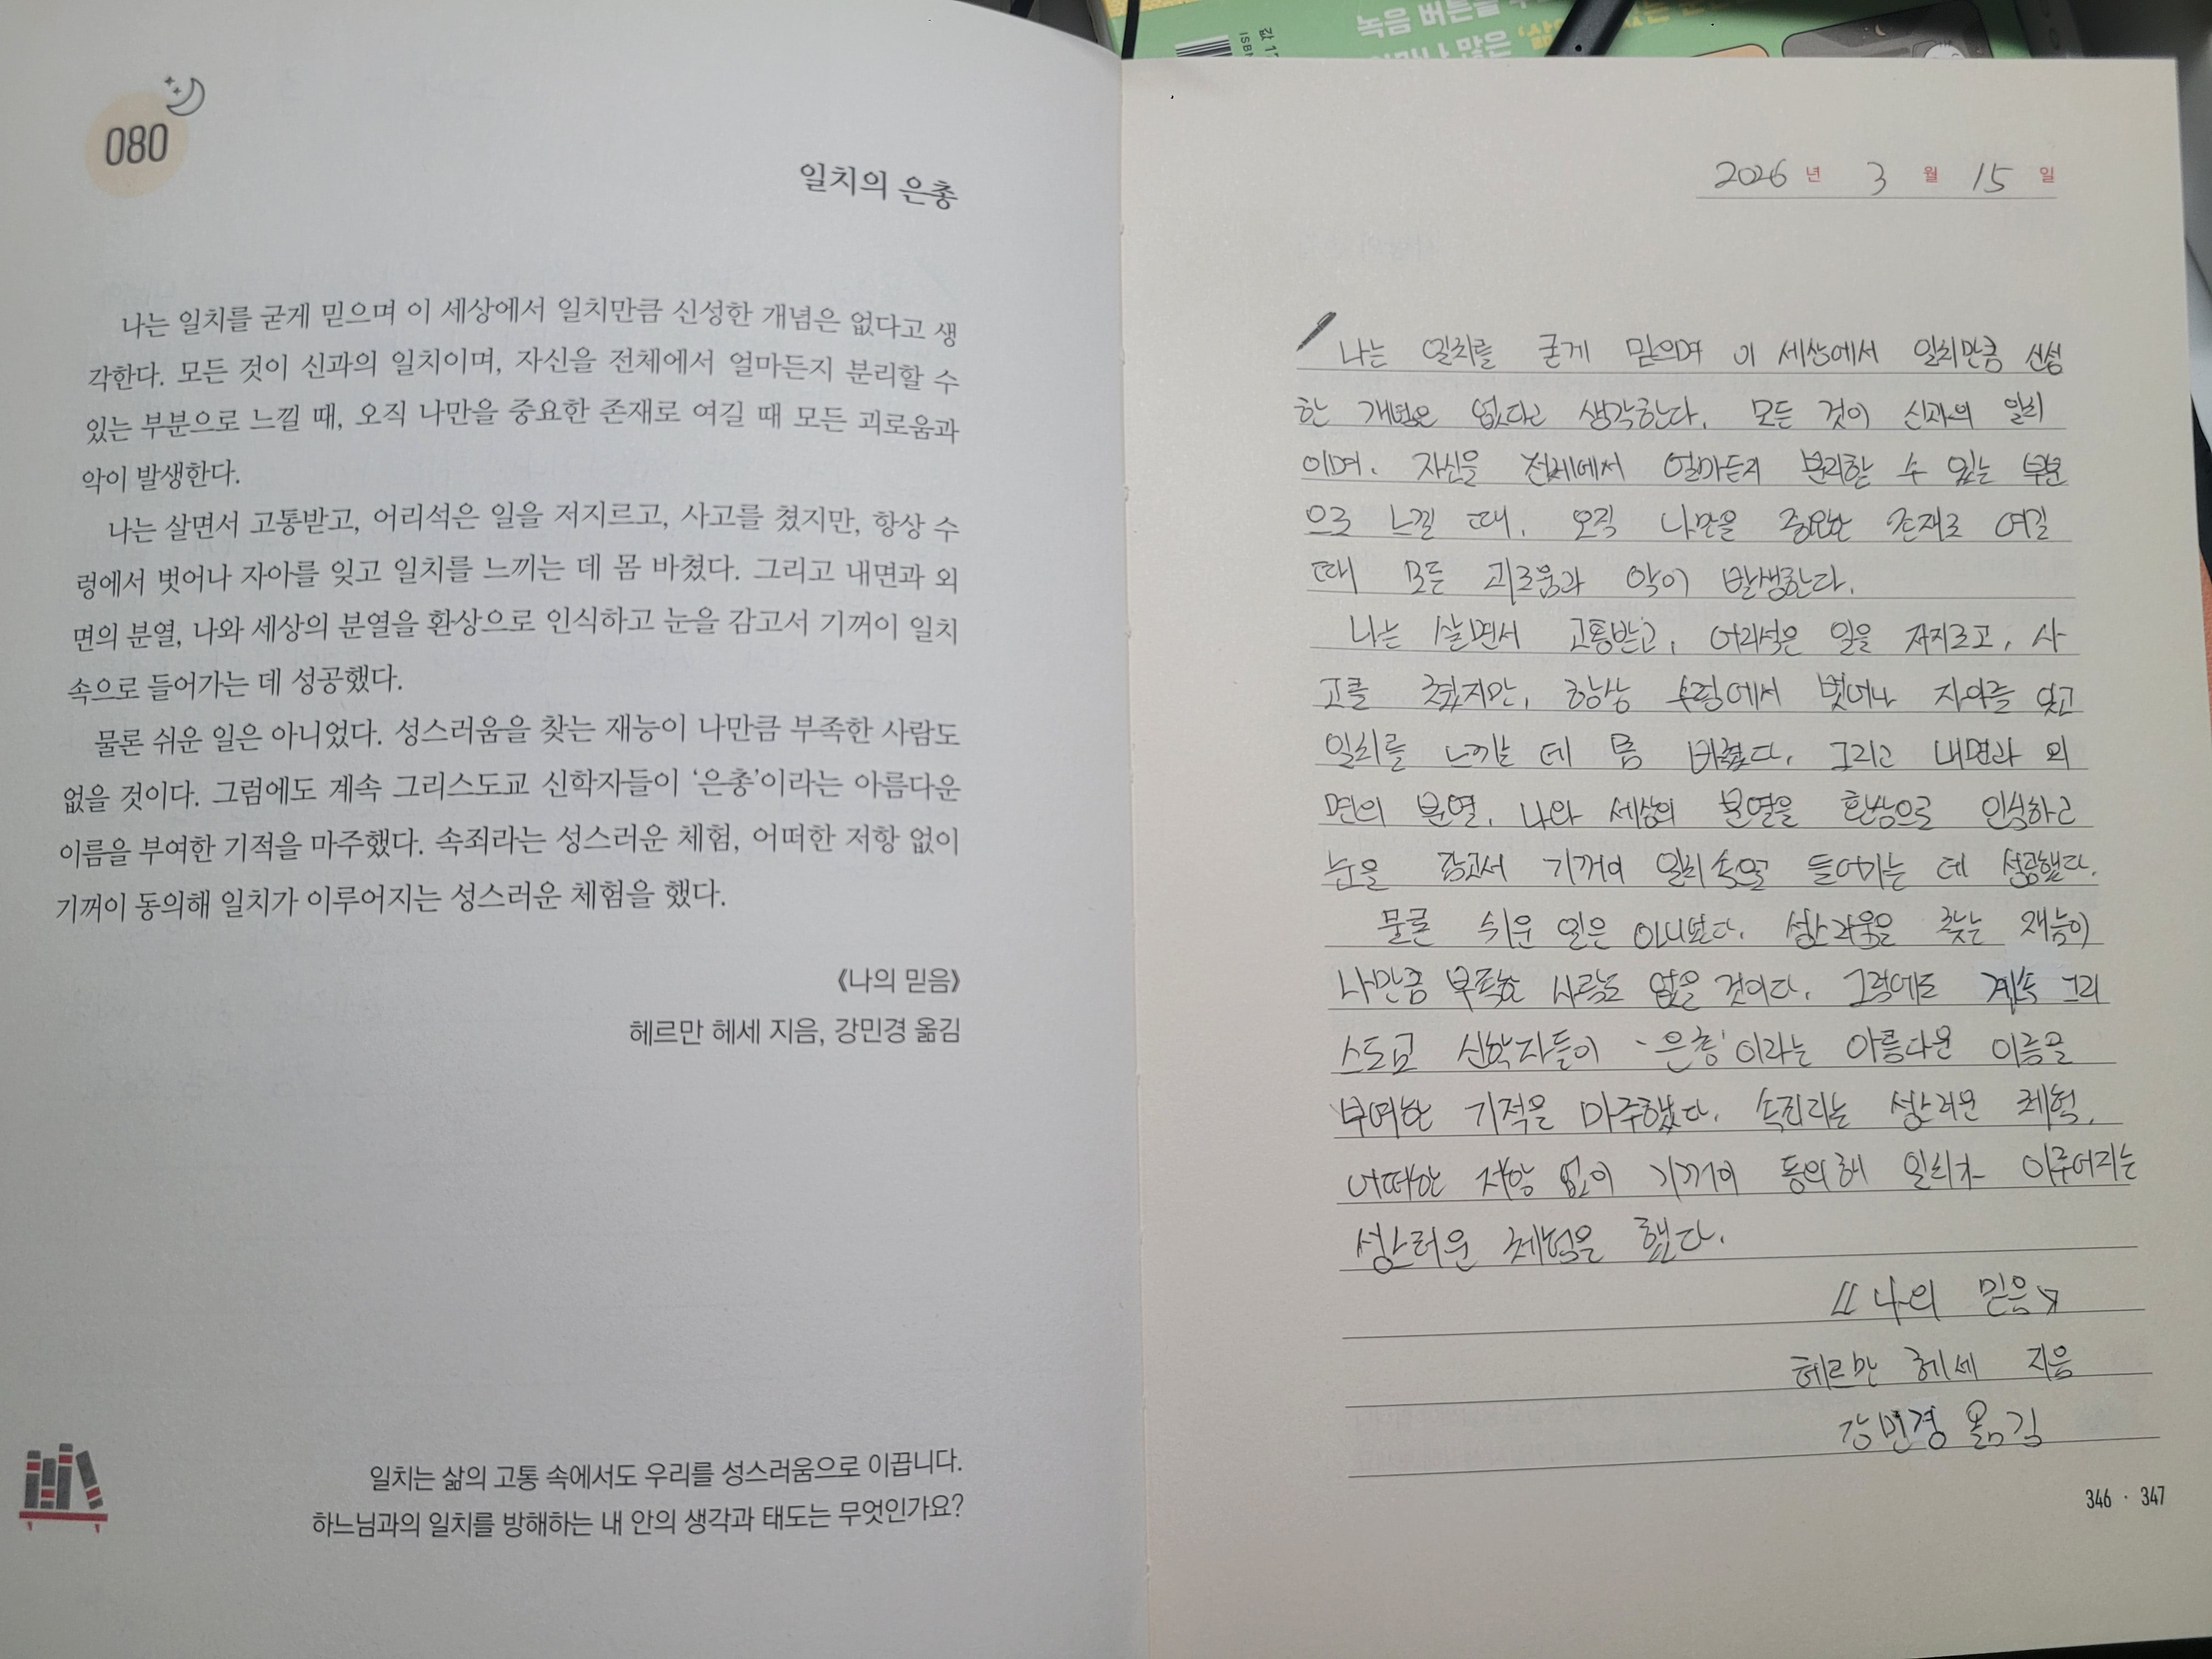 녹음 버튼을
많은
ISBN
값 1
080
일치의 은총
나는 일치를 굳게 믿으며 이 세상에서 일치만큼 신성한 개념은 없다고 생
각한다. 모든 것이 신과의 일치이며, 자신을 전체에서 얼마든지 분리할 수
있는 부분으로 느낄 때, 오직 나만을 중요한 존재로 여길 때 모든 괴로움과
악이 발생한다.
나는 살면서 고통받고, 어리석은 일을 저지르고, 사고를 쳤지만, 항상 수
렁에서 벗어나 자아를 잊고 일치를 느끼는 데 몸 바쳤다. 그리고 내면과 외
면의 분열, 나와 세상의 분열을 환상으로 인식하고 눈을 감고서 기꺼이 일치
속으로 들어가는 데 성공했다.
물론 쉬운 일은 아니었다. 성스러움을 찾는 재능이 나만큼 부족한 사람도
없을 것이다. 그럼에도 계속 그리스도교 신학자들이 ‘은총’이라는 아름다운
이름을 부여한 기적을 마주했다. 속죄라는 성스러운 체험, 어떠한 저항 없이
기꺼이 동의해 일치가 이루어지는 성스러운 체험을 했다.
《나의 믿음》
헤르만 헤세 지음, 강민경 옮김
일치는 삶의 고통 속에서도 우리를 성스러움으로 이끕니다.
하느님과의 일치를 방해하는 내 안의 생각과 태도는 무엇인가요?
2026 년 3 월 15 일
나는 일치를 굳게 믿으며 이 세상에서 일치만큼 신성
한 개념은 없다고 생각한다. 모든 것이 신과의 일치
이며. 자신을 전체에서 얼마든지 분리할 수 있는 부분
으로 느낄 때. 오직 나만을 중요한 존재로 여길
때 모든 괴로움과 악이 발생한다.
나는 살면서 고통받고, 어리석은 일을 저지르고, 사
고를 쳤지만, 항상 수렁에서 벗어나 자아를 잊고
일치를 느끼는 데 몸 바쳤다. 그리고 내면과 외
면의 분열. 나와 세상의 분열을 환상으로 인식하고
눈을 감고서 기꺼이 일치 속으로 들어가는 데 성공했다.
물론 쉬운 일은 아니었다. 성스러움을 찾는 재능이
나만큼 부족한 사람도 없을 것이다. 그럼에도 계속 그리
스도교 신학자들이 '은총'이라는 아름다운 이름을
부여한 기적을 마주했다. 속죄라는 성스러운 체험,
어떠한 저항 없이 기꺼이 동의해 일치가 이루어지는
성스러운 체험을 했다.
《나의 믿음》
헤르만 헤세 지음
강민경 옮김
346 · 347